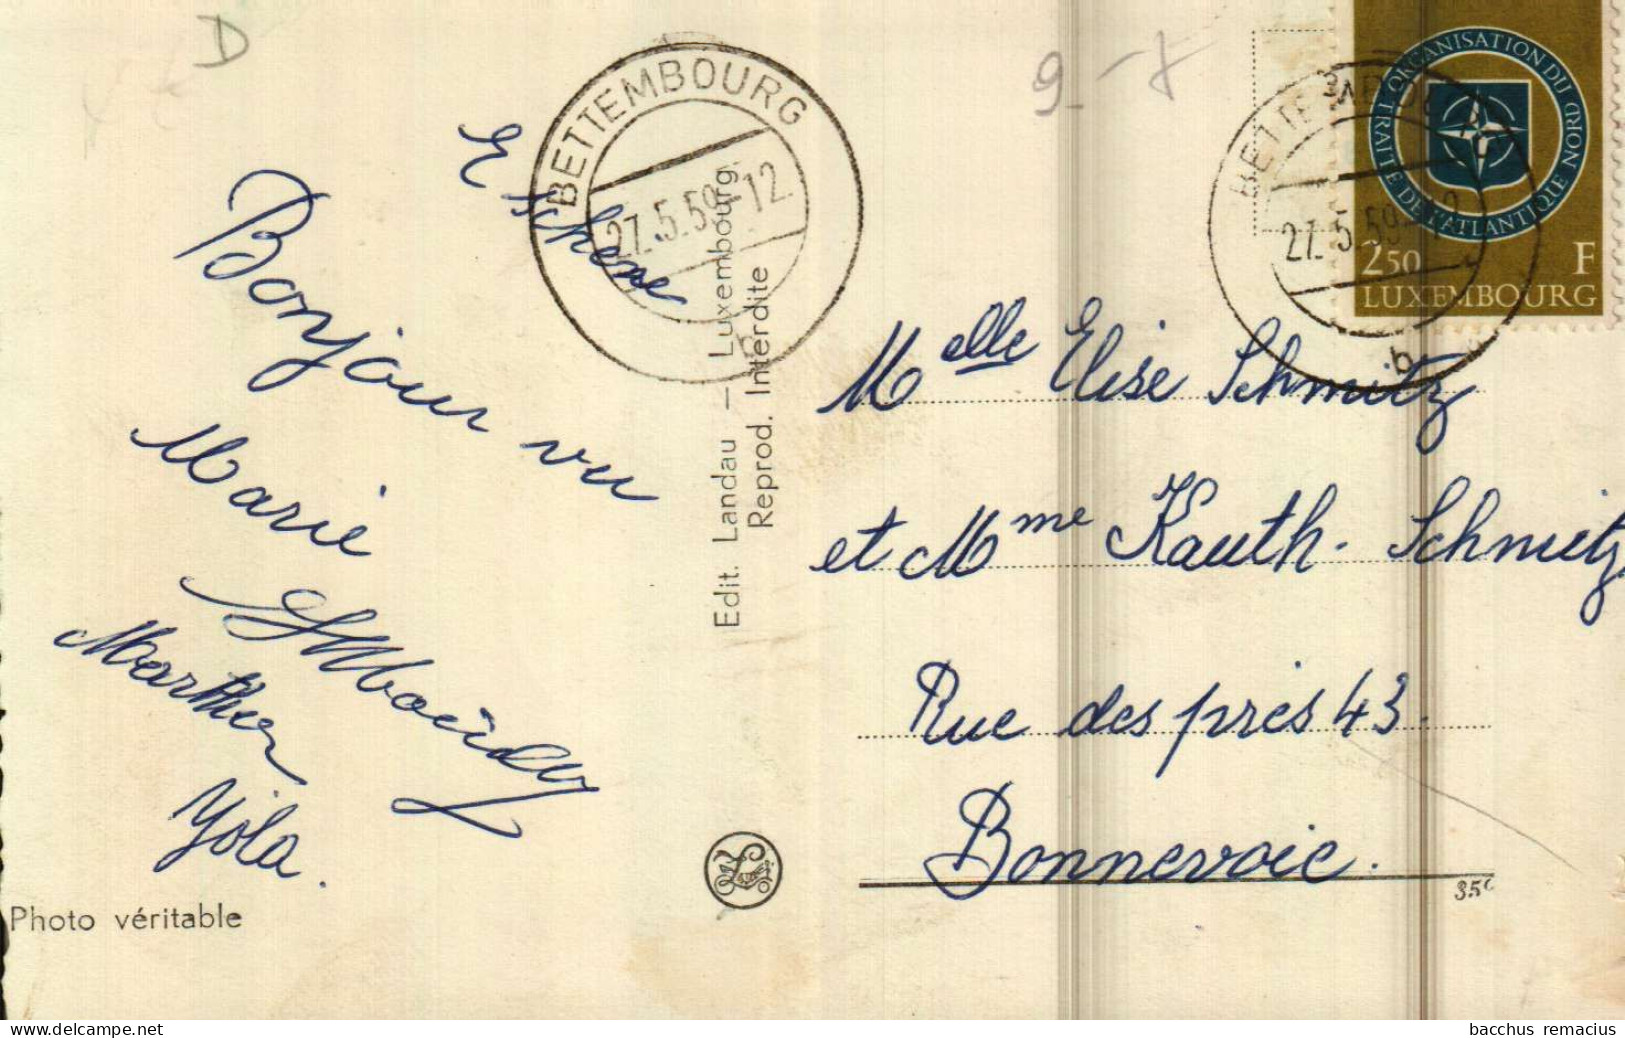 D
9 - 7
BETTEMBOURG
27.5.59-12
b
Bonjour vu
Marie
Marther
Yola.
Photo véritable
Edit. Landau – Luxembourg.
Reprod. Interdite
ORGANISATION DU TRAITE DE L'ATLANTIQUE NORD
2.50 F
LUXEMBOURG
BETTEMBOURG
27.5.59-12
b
Melle Elise Schmitz
et Mme Kauth-Schmitz
Rue des prés 43.
Bonnevoie.
35c
bacchus remacius
www.delcampe.net